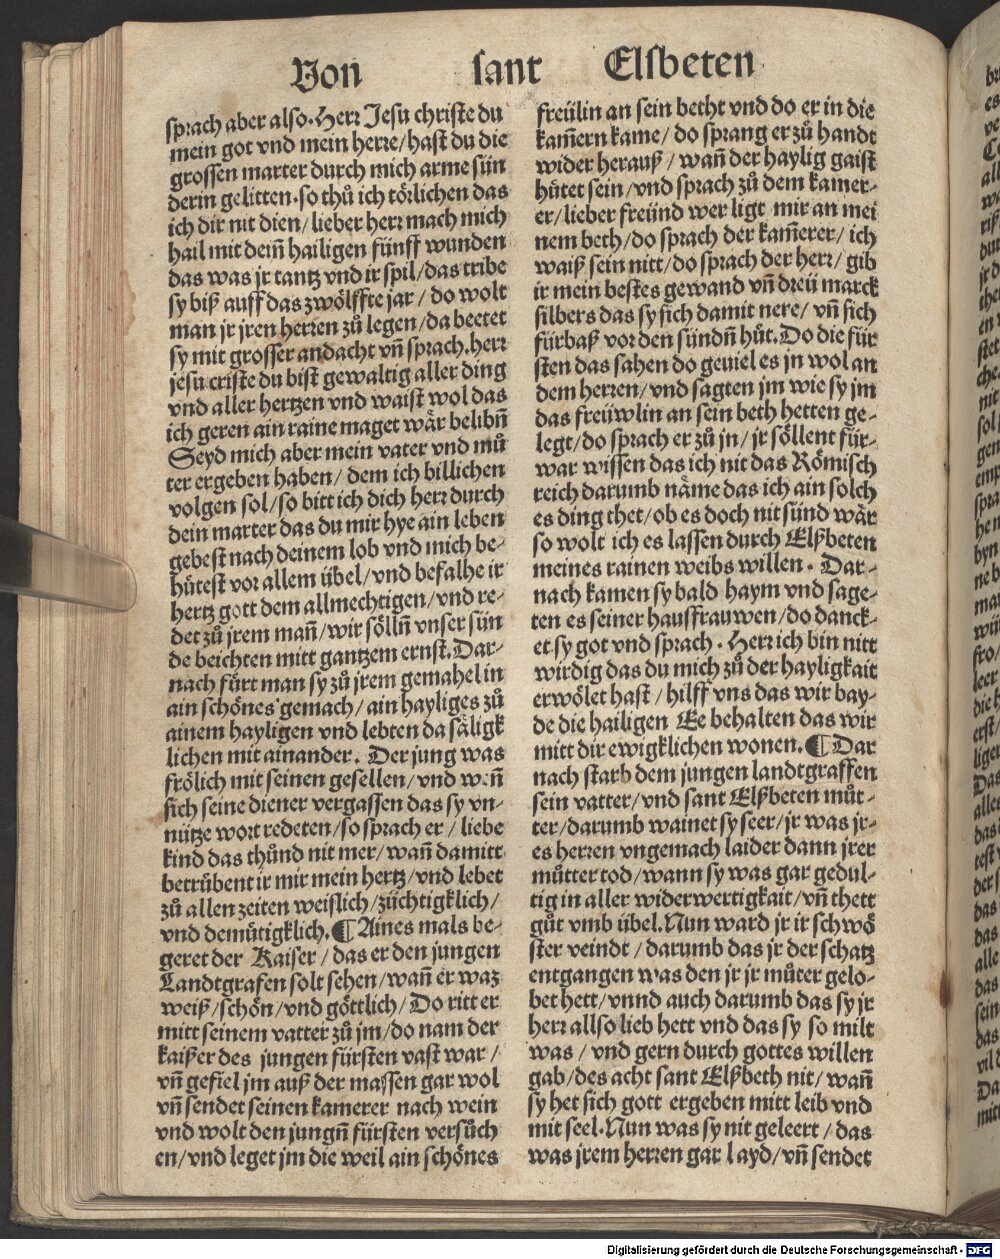 Von sant Elsbeten
sprach aber also. Herr Jesu christe du
mein got vnd mein herre/hast du die
grossen marter durch mich arme sün
derin gelitten. so thuͦ ich toͤrlichen das
ich dir nit dien/lieber herr mach mich
hail mit deim̃ hailigen fünff wunden
das was jr tantz vnd ir spil/das tribe
sy biß auff das zwoͤlffte jar/do wolt
man jr jren herren zuͦ legen/da beetet
sy mit grosser andacht vñ sprach. herr
jesu criste du bist gewaltig aller ding
vnd aller hertzen vnd waist wol das
ich geren ain raine maget waͤr belibñ
Seyd mich aber mein vater vnd muͦ
ter ergeben haben/dem ich billichen
volgen sol/so bitt ich dich herr durch
dein marter das du mir hye ain leben
gebest nach deinem lob vnd mich be-
huͤtest vor allem übel/vnd befalhe ir
hertz gott dem allmechtigen/vnd re-
det zuͦ jrem mañ/wir soͤllñ vnser sün
de beichten mitt gantzem ernst. Dar-
nach fuͤrt man sy zuͦ jrem gemahel in
ain schoͤnes gemach/ain hayliges zuͦ
ainem hayligen vnd lebten da saͤligk
lichen mit ainander. Der jung was
froͤlich mit seinen gesellen/vnd weñ
sich seine diener vergassen das sy vn-
nütze wort redeten/so sprach er/liebe
kind das thuͤnd nit mer/wañ damitt
betruͤbent ir mir mein hertz/vnd lebet
zuͦ allen zeiten weislich/züchtigklich/
vnd demuͤtigklich. ¶ Aines mals be-
geret der Kaiser/das er den jungen
Landtgrafen solt sehen/wañ er waz
weiß/schoͤn/vnd goͤttlich/Do ritt er
mitt seinem vatter zuͦ jm/do nam der
kaißer des jungen fürsten vast war/
vñ gefiel jm auß der massen gar wol
vñ sendet seinen kamerer nach wein
vnd wolt den jungñ fürsten versuͦch
en/vnd leget jm die weil ain schoͤnes
freülin an sein betht vnd do er in die
kam̃ern kame/do sprang er zuͦ handt
wider herauß/wañ der haylig gaist
huͤtet sein/vnd sprach zuͦ dem kamer-
er/lieber freünd wer ligt mir an mei
nem beth/do sprach der kam̃erer/ich
waiß sein nitt/do sprach der herr/gib
ir mein bestes gewand vñ dreü marck
silbers das sy sich damit nere/vñ sich
fürbaß vor den sündñ huͤt. Do die für
sten das sahen do geuiel es in wol an
dem herren/vnd sagten jm wie sy jm
das freüwlin an sein beth hetten ge-
legt/do sprach er zuͦ jn/jr soͤllent für-
war wissen das ich nit das Roͤmisch
reich darumb naͤme das ich ain solch
es ding thet/ob es doch nit sünd waͤr
so wolt ich es lassen durch Elßbeten
meines rainen weibs willen. Dar-
nach kamen sy bald haym vnd sage-
ten es seiner haussfrauwen/do danck-
et sy got vnd sprach. Herr ich bin nitt
wirdig das du mich zuͦ der hayligkait
erwoͤlet hast/hilff vns das wir bay-
de die hailigen Ee behalten das wir
mitt dir ewigklichen wonen. ¶ Dar
nach starb dem jungen landtgraffen
sein vatter/vnd sant Elßbeten muͦt-
ter/darumb wainet sy seer/jr was jr-
es herren vngemach laider dann jrer
muͦtter tod/wann sy was gar gedul-
tig in aller widerwertigkait/vñ thett
guͦt vmb übel. Nun ward jr ir schwoͤ
ster veindt/darumb das jr der schatz
entgangen was den jr jr muͦter gelo-
bet hett/vnnd auch darumb das sy jr
herr allso lieb hett vnd das sy so milt
was/vnd gern durch gottes willen
gab/des acht sant Elßbeth nit/wañ
sy het sich gott ergeben mitt leib vnd
mit seel. Nun was sy nit geleert/das
was jrem herren gar layd/vñ sendet
Digitalisierung gefördert durch die Deutsche Forschungsgemeinschaft - DFG